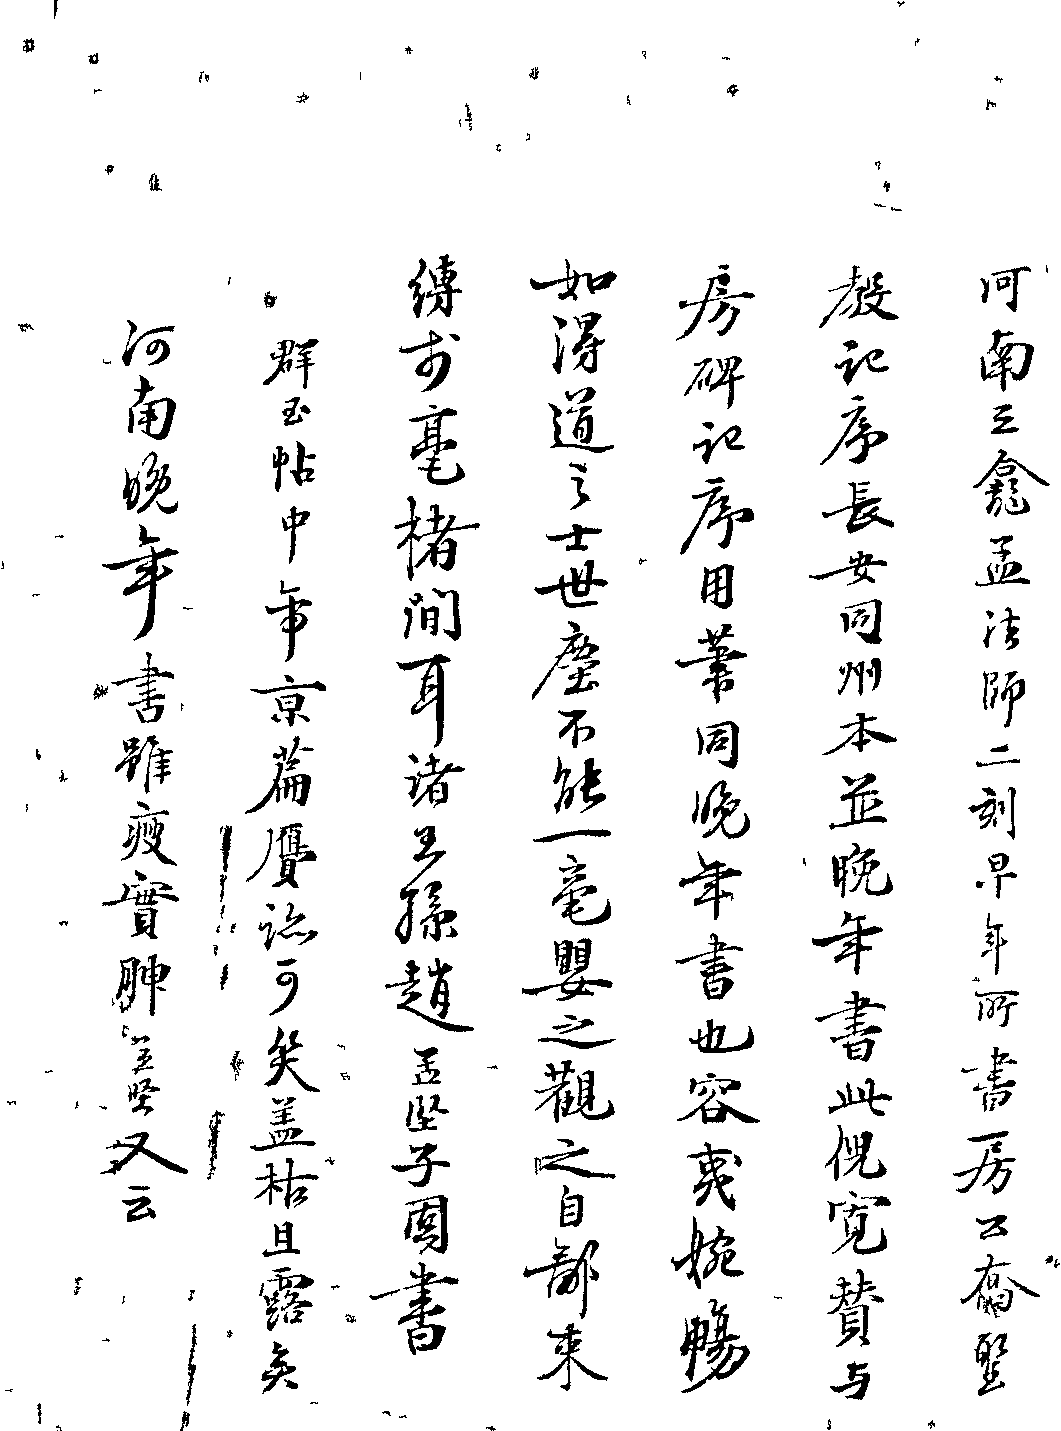 河南三龕孟法師二刻早年所書房公喬聖
教記序長安同州本並晚年書此倪寬贊与
房碑記序用筆同晚年書也容夷婉暢
如得道之士世塵不能一毫嬰之觀之自鄙束
縛於毫楮間耳諸王孫趙孟堅子固書
群玉帖中年京篇贋跡可笑盖枯且露矣
河南晚年書雖瘦實腴孟堅又云